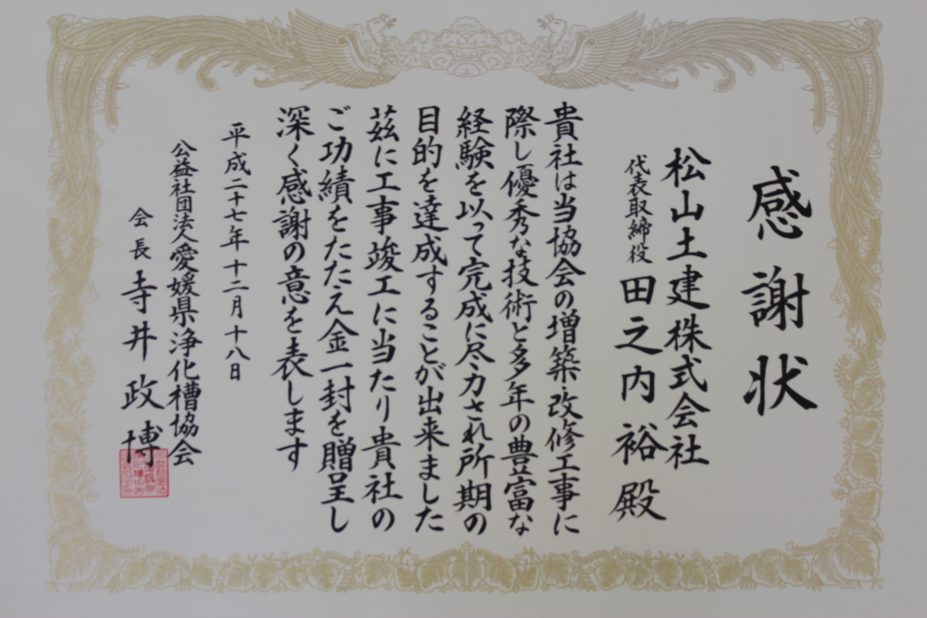 感謝状
松山土建株式会社
代表取締役 田之内裕殿
貴社は当協会の増築・改修工事に
際し優秀な技術と多年の豊富な
経験を以って完成に尽力され所期の
目的を達成することが出来ました
茲に工事竣工に当たり貴社の
ご功績をたたえ金一封を贈呈し
深く感謝の意を表します
平成二十七年十二月十八日
公益社団法人愛媛県浄化槽協会
会長 寺井政博